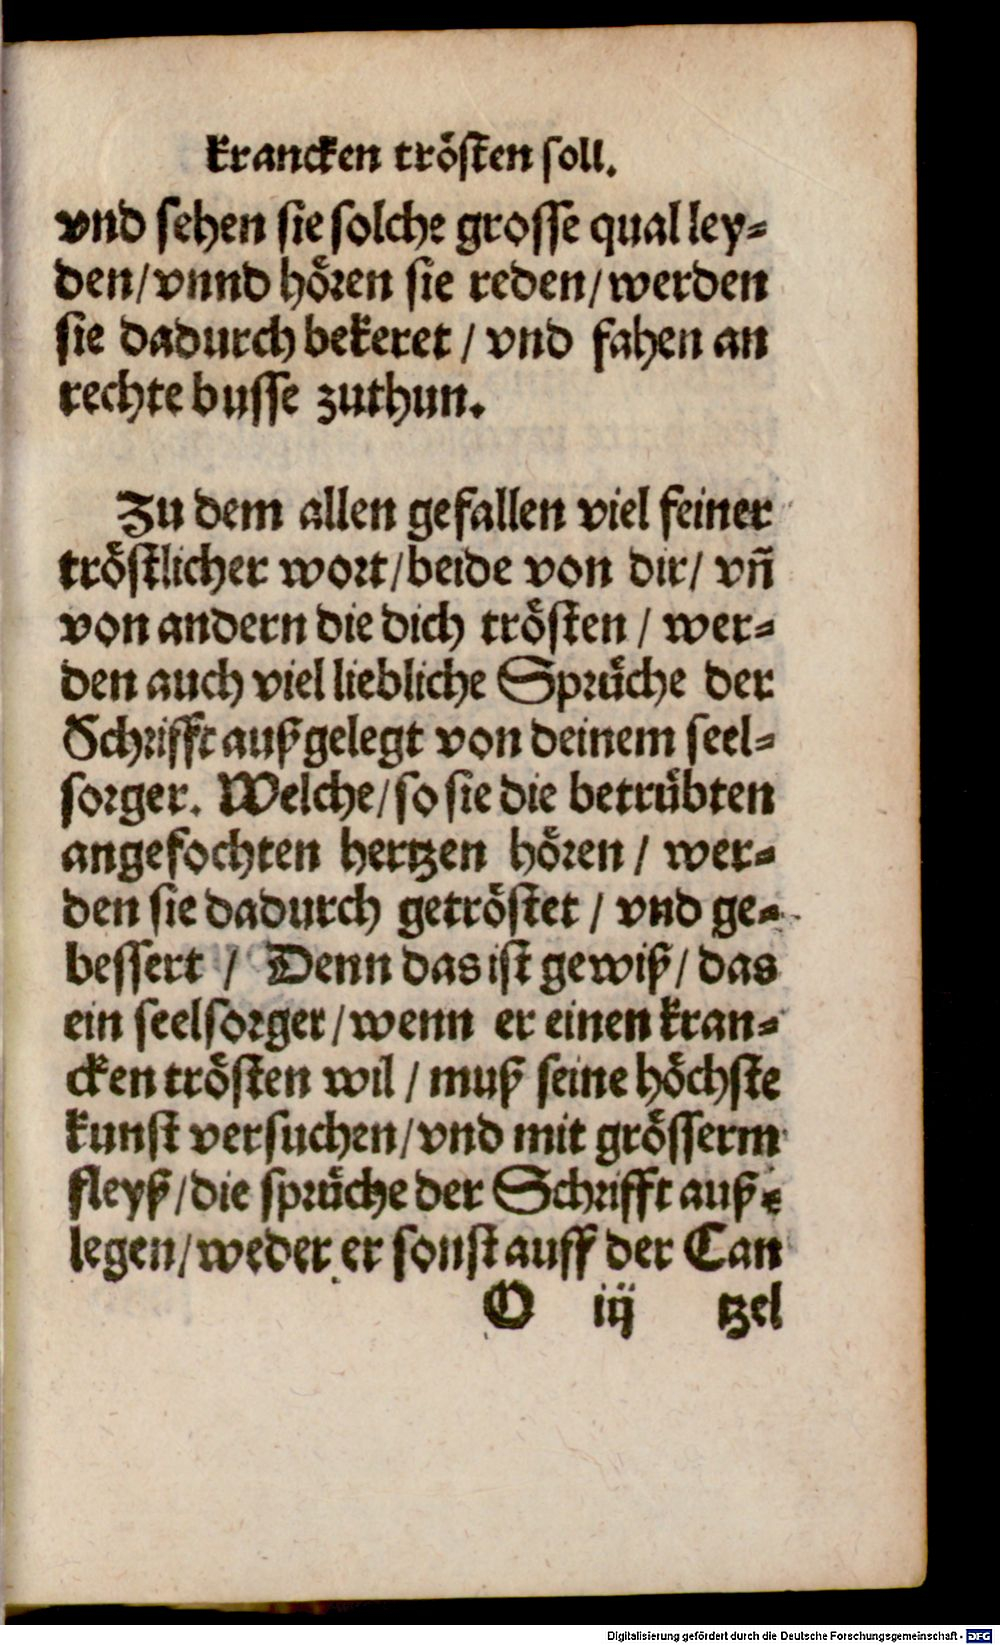 krancken trösten soll.
vnd sehen sie solche grosse qual ley-
den/vnnd hören sie reden/werden
sie dadurch bekeret / vnd fahen an
rechte busse zuthun.
Zu dem allen gefallen viel feiner
tröstlicher wort/beide von dir/ vn̄
von andern die dich trösten / wer-
den auch viel liebliche Sprüche der
Schrifft außgelegt von deinem seel-
sorger. Welche/so sie die betrübten
angefochten hertzen hören / wer-
den sie dadurch getröstet / vnd ge-
bessert / Denn das ist gewiß/ das
ein seelsorger/wenn er einen kran-
cken trösten wil / muß seine höchste
kunst versuchen/vnd mit grösserm
fleyß/die sprüche der Schrifft auß-
legen/weder er sonst auff der Can
O iij tzel
Digitalisierung gefördert durch die Deutsche Forschungsgemeinschaft - DFG